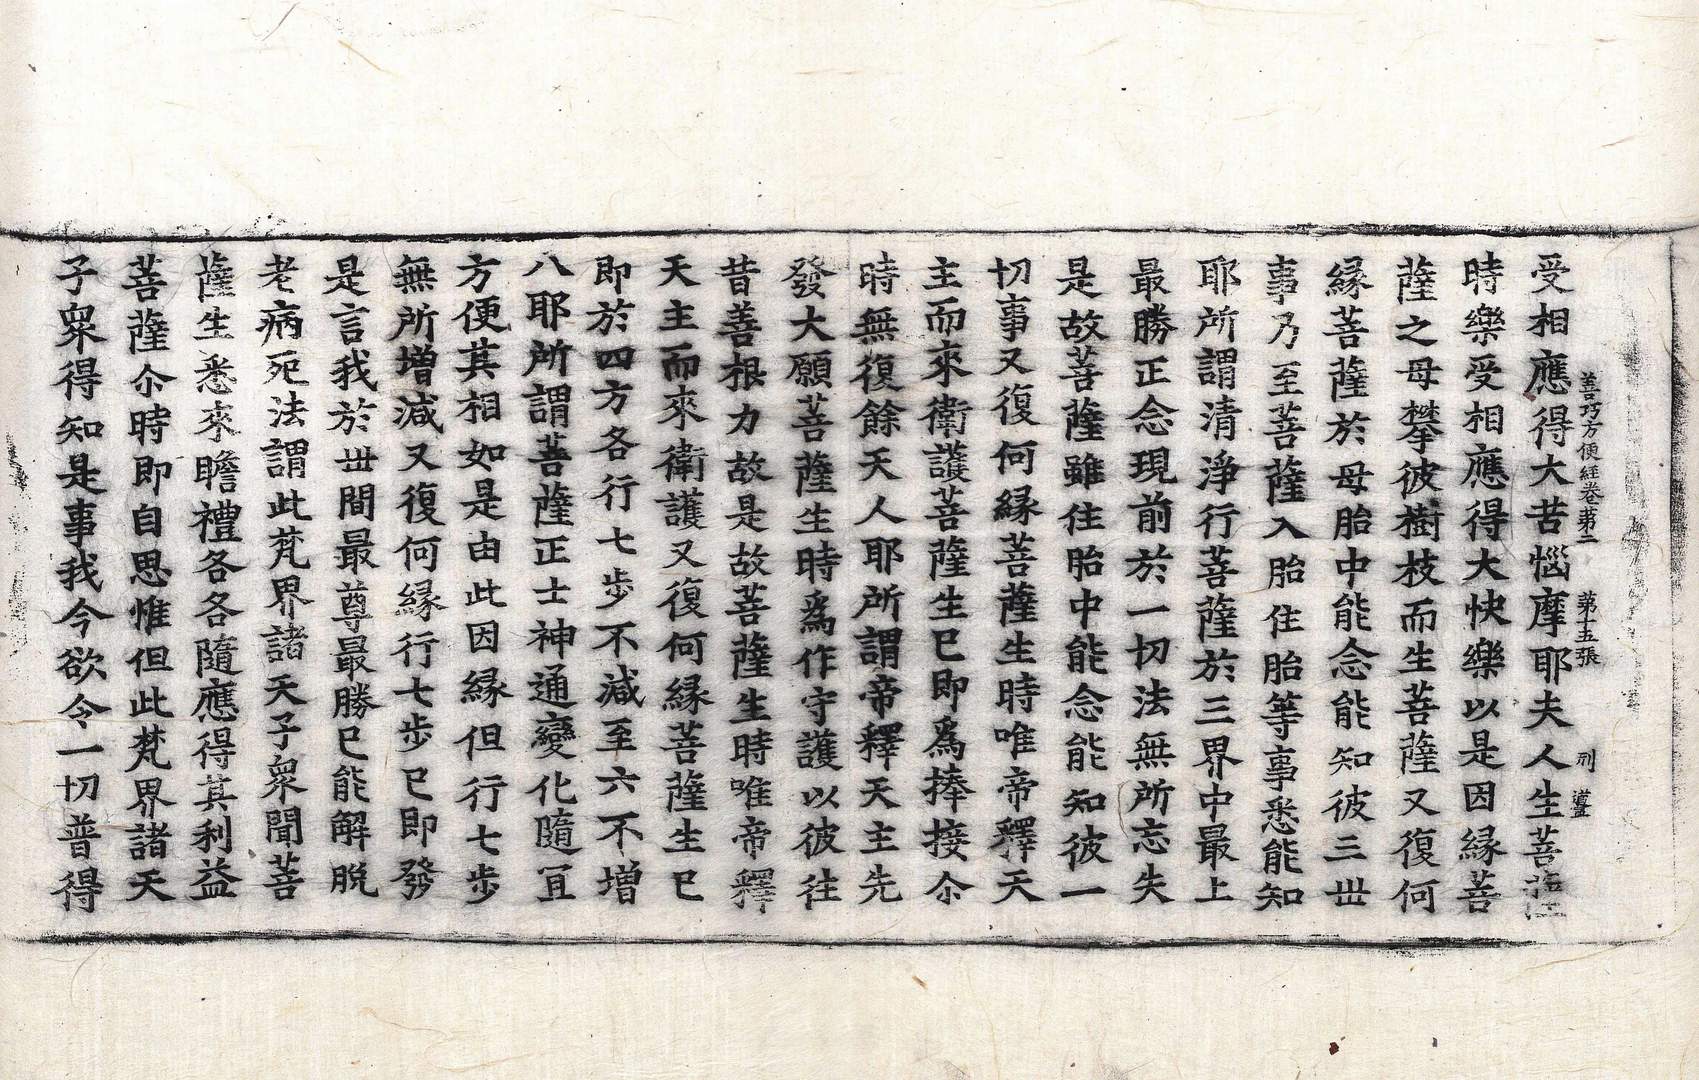 善巧方便經卷第二 第十五張 刑
受相應得大苦惱摩耶夫人生菩薩
時樂受相應得大快樂以是因緣菩
薩之母攀彼樹枝而生菩薩又復何
緣菩薩於母胎中能念能知彼三世
事乃至菩薩入胎住胎等事悉能知
耶所謂清淨行菩薩於三界中最上
最勝正念現前於一切法無所忘失
是故菩薩雖住胎中能念能知彼一
切事又復何緣菩薩生時唯帝釋天
主而來衛護菩薩生已即爲捧接尒
時無復餘天人耶所謂帝釋天主先
發大願菩薩生時爲作守護以彼往
昔善根力故是故菩薩生時唯帝釋
天主而來衛護又復何緣菩薩生已
即於四方各行七步不減至六不增
八耶所謂菩薩正士神通變化隨冝
方便其相如是由此因緣但行七步
無所增減又復何緣行七步已即發
是言我於丗間最尊最勝已能解脫
老病死法謂此梵界諸天子衆聞菩
薩生悉來瞻禮各各隨應得其利益
菩薩尒時即自思惟但此梵界諸天
子衆得知是事我今欲令一切普得